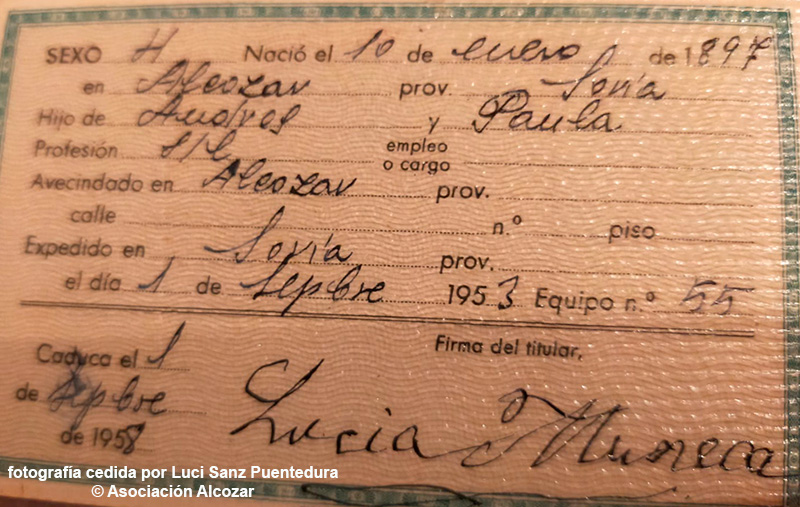 SEXO H Nació el 10 de enero de 1897
en Alcozar prov. Soria
Hijo de Andres y Paula
Profesión S/L empleo o cargo
Avecindado en Alcozar prov.
calle n.º piso
Expedido en Soria prov.
el día 1 de Sepbre 1953 Equipo n.º 55
Caduca el 1 Firma del titular,
de Sepbre
de 1958
Lucia Muneca
fotografía cedida por Luci Sanz Puentedura
© Asociación Alcozar